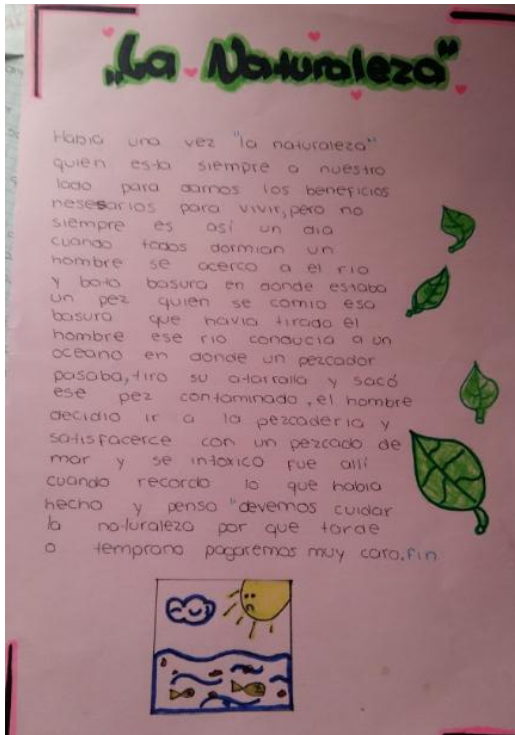 "La Naturaleza"
Habia una vez "la naturaleza"
quien esta siempre a nuestro
lado para darnos los beneficios
nesesarios para vivir, pero no
siempre es así un dia
cuando todos dormian un
hombre se acerco a el rio
y boto basura en donde estaba
un pez quien se comio esa
basura que havia tirado el
hombre ese rio conducia a un
oceano en donde un pezcador
pasaba, tiro su atarralla y sacó
ese pez contaminado, el hombre
decidio ir a la pezcaderia y
satisfacerce con un pezcado de
mar y se intoxico fue allí
cuando recordo lo que habia
hecho y penso "devemos cuidar
la naturaleza por que tarde
o temprano pagaremos muy caro. fin